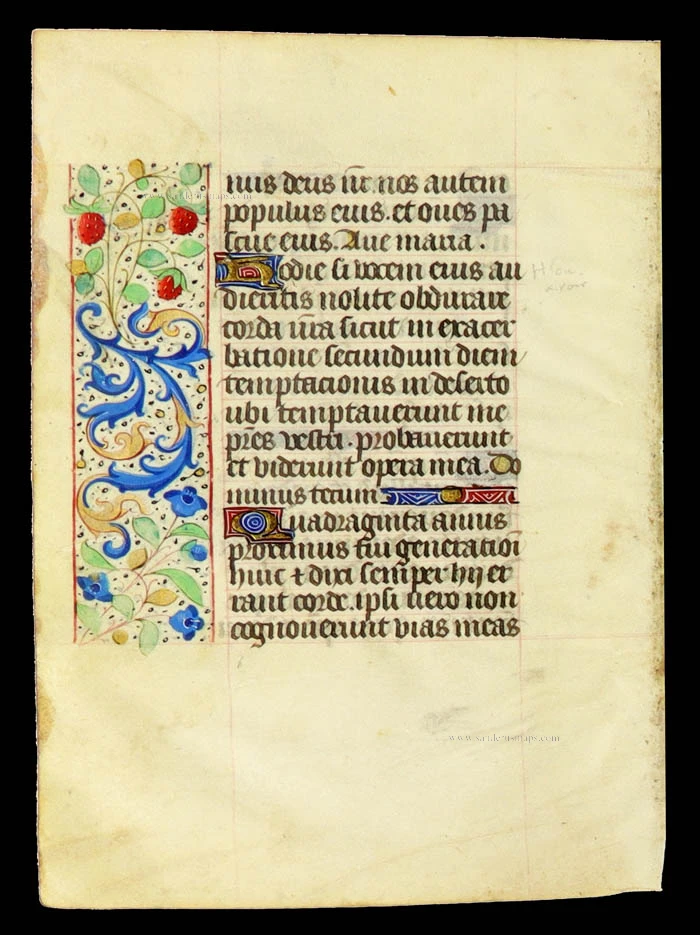 nus deus nr̄. nos autem
populus eius. et oues pa
scue eius. Aue maria.
Hodie si vocem eius au
dieritis nolite obdurare
corda ūra sicut in exacer
batione secundum diem
temptacionis in deserto
ubi temptauerunt me
pr̄es vestri. probauerunt
et viderunt opera mea. Do
minus tecum
Quadraginta annis
proximus fui generationi
huic ⁊ dixi semper hij er
rant corde. ipsi uero non
cognouerunt vias meas
www.sanderusmaps.com
www.sanderusmaps.com